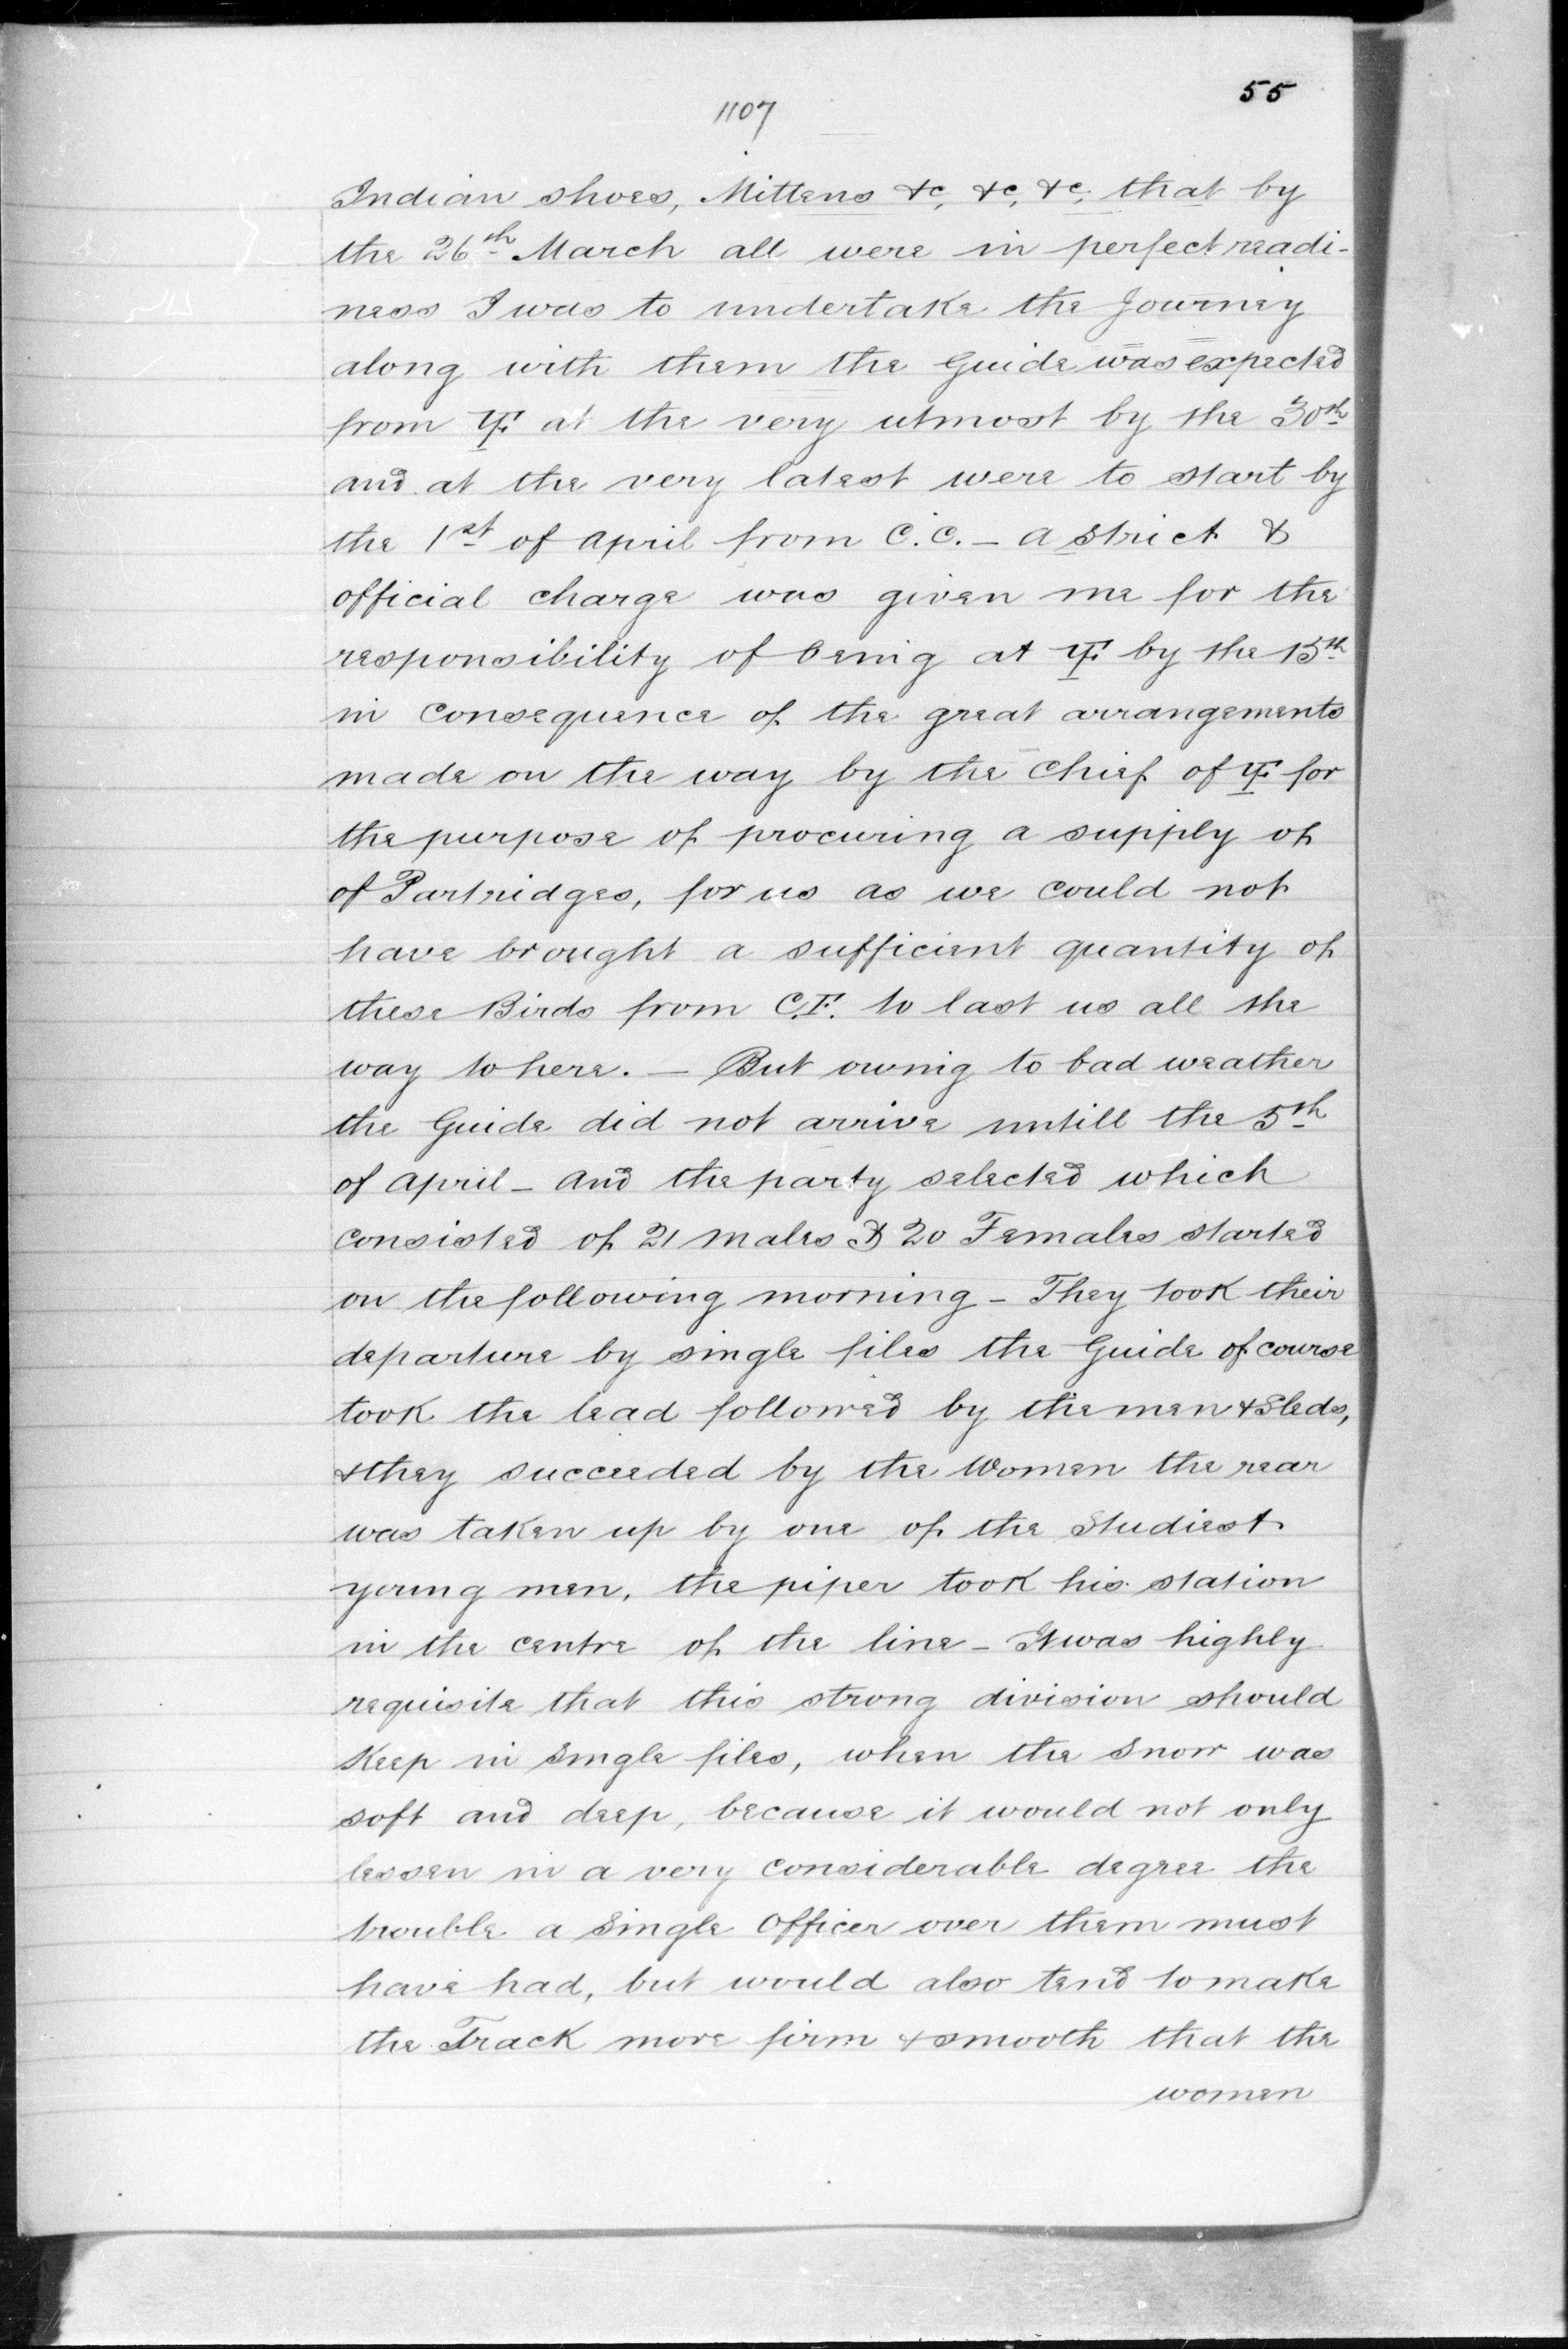 55
1107
Indian shoes, Mittens &c, &c, &c, that by
the 26th March all were in perfect readi-
ness I was to undertake the Journey
along with them the Guide was expected
from YF. at the very utmost by the 30th
and at the very latest were to start by
the 1st of April from C.C. - A strict &
official charge was given me for the
responsibility of being at YF. by the 15th
in consequence of the great arrangements
made on the way by the Chief of YF. for
the purpose of procuring a supply of
of Partridges, for us as we could not
have brought a sufficient quantity of
these Birds from C.F. to last us all the
way to here. - But owing to bad weather
the Guide did not arrive untill the 5th
of April - and the party selected which
consisted of 21 males & 20 Females started
on the following morning - They took their
departure by single files the Guide of course
took the lead followed by the men & Sleds,
& they succeeded by the Women the rear
was taken up by one of the Studiest
young men, the piper took his station
in the centre of the line - It was highly
requisite that this strong division should
Keep in Single files, when the Snow was
soft and deep, because it would not only
lessen in a very considerable degree the
trouble a Single Officer over them must
have had, but would also tend to make
the Track more firm & smooth that the
women